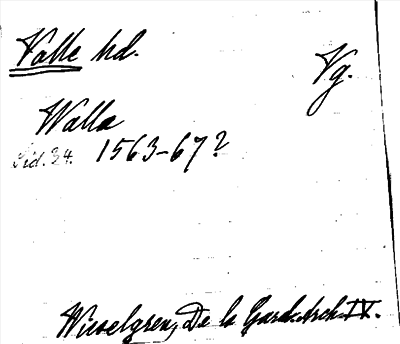 Valle hd.
Vg.
Walla
Sid. 34. 1563-67?
Wieselgren, De la Gard. Arch. IV.